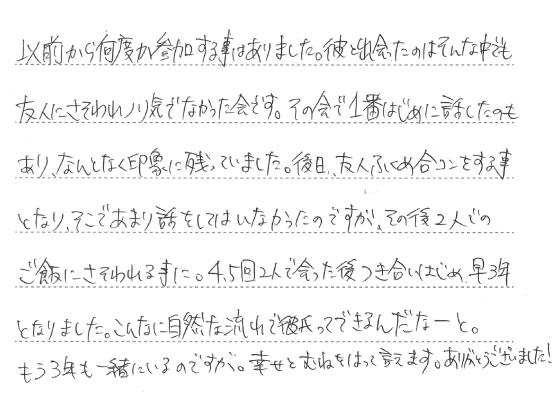 以前から何度か参加する事はありました。彼と出会ったのはそんな中でも
友人にさそわれノリ気でなかった会です。その会で1番はじめに話したのも
あり、なんとなく印象に残っていました。後日、友人ふくめ合コンをする事
となり、そこであまり話をしてはいなかったのですが、その後2人での
ご飯にさそわれる事に。4、5回2人で会った後つき合いはじめ、早3年
となりました。こんなに自然な流れで彼氏ってできるんだなーと。
もう3年も一緒にいるのですが。幸せとむねをはって言えます。ありがとうございました!